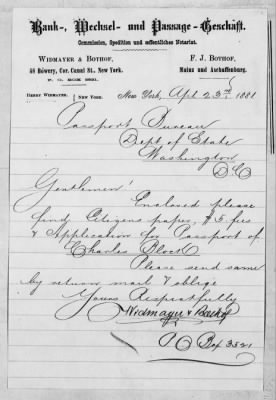 Bank-, Wechsel- und Passage-Geschäft.
Commission, Spedition und oeffentliches Notariat.
WIDMAYER & BOTHOF,
48 Bowery, Cor. Canal St., New York.
P. O. BOX 3521.
F. J. BOTHOF,
Mainz und Aschaffenburg.
HENRY WIDMAYER. NEW YORK.
New York, Apl 23rd 1881
Passport Bureau
Dept of State
Washington
D C
Gentlemen!
Enclosed please
find Citizens paper, $5. fees
& Application for Passport of
Charles Block
Please send same
by return mail & oblige
Yours Respectfully
Widmayer & Bothof
P O Box 3521